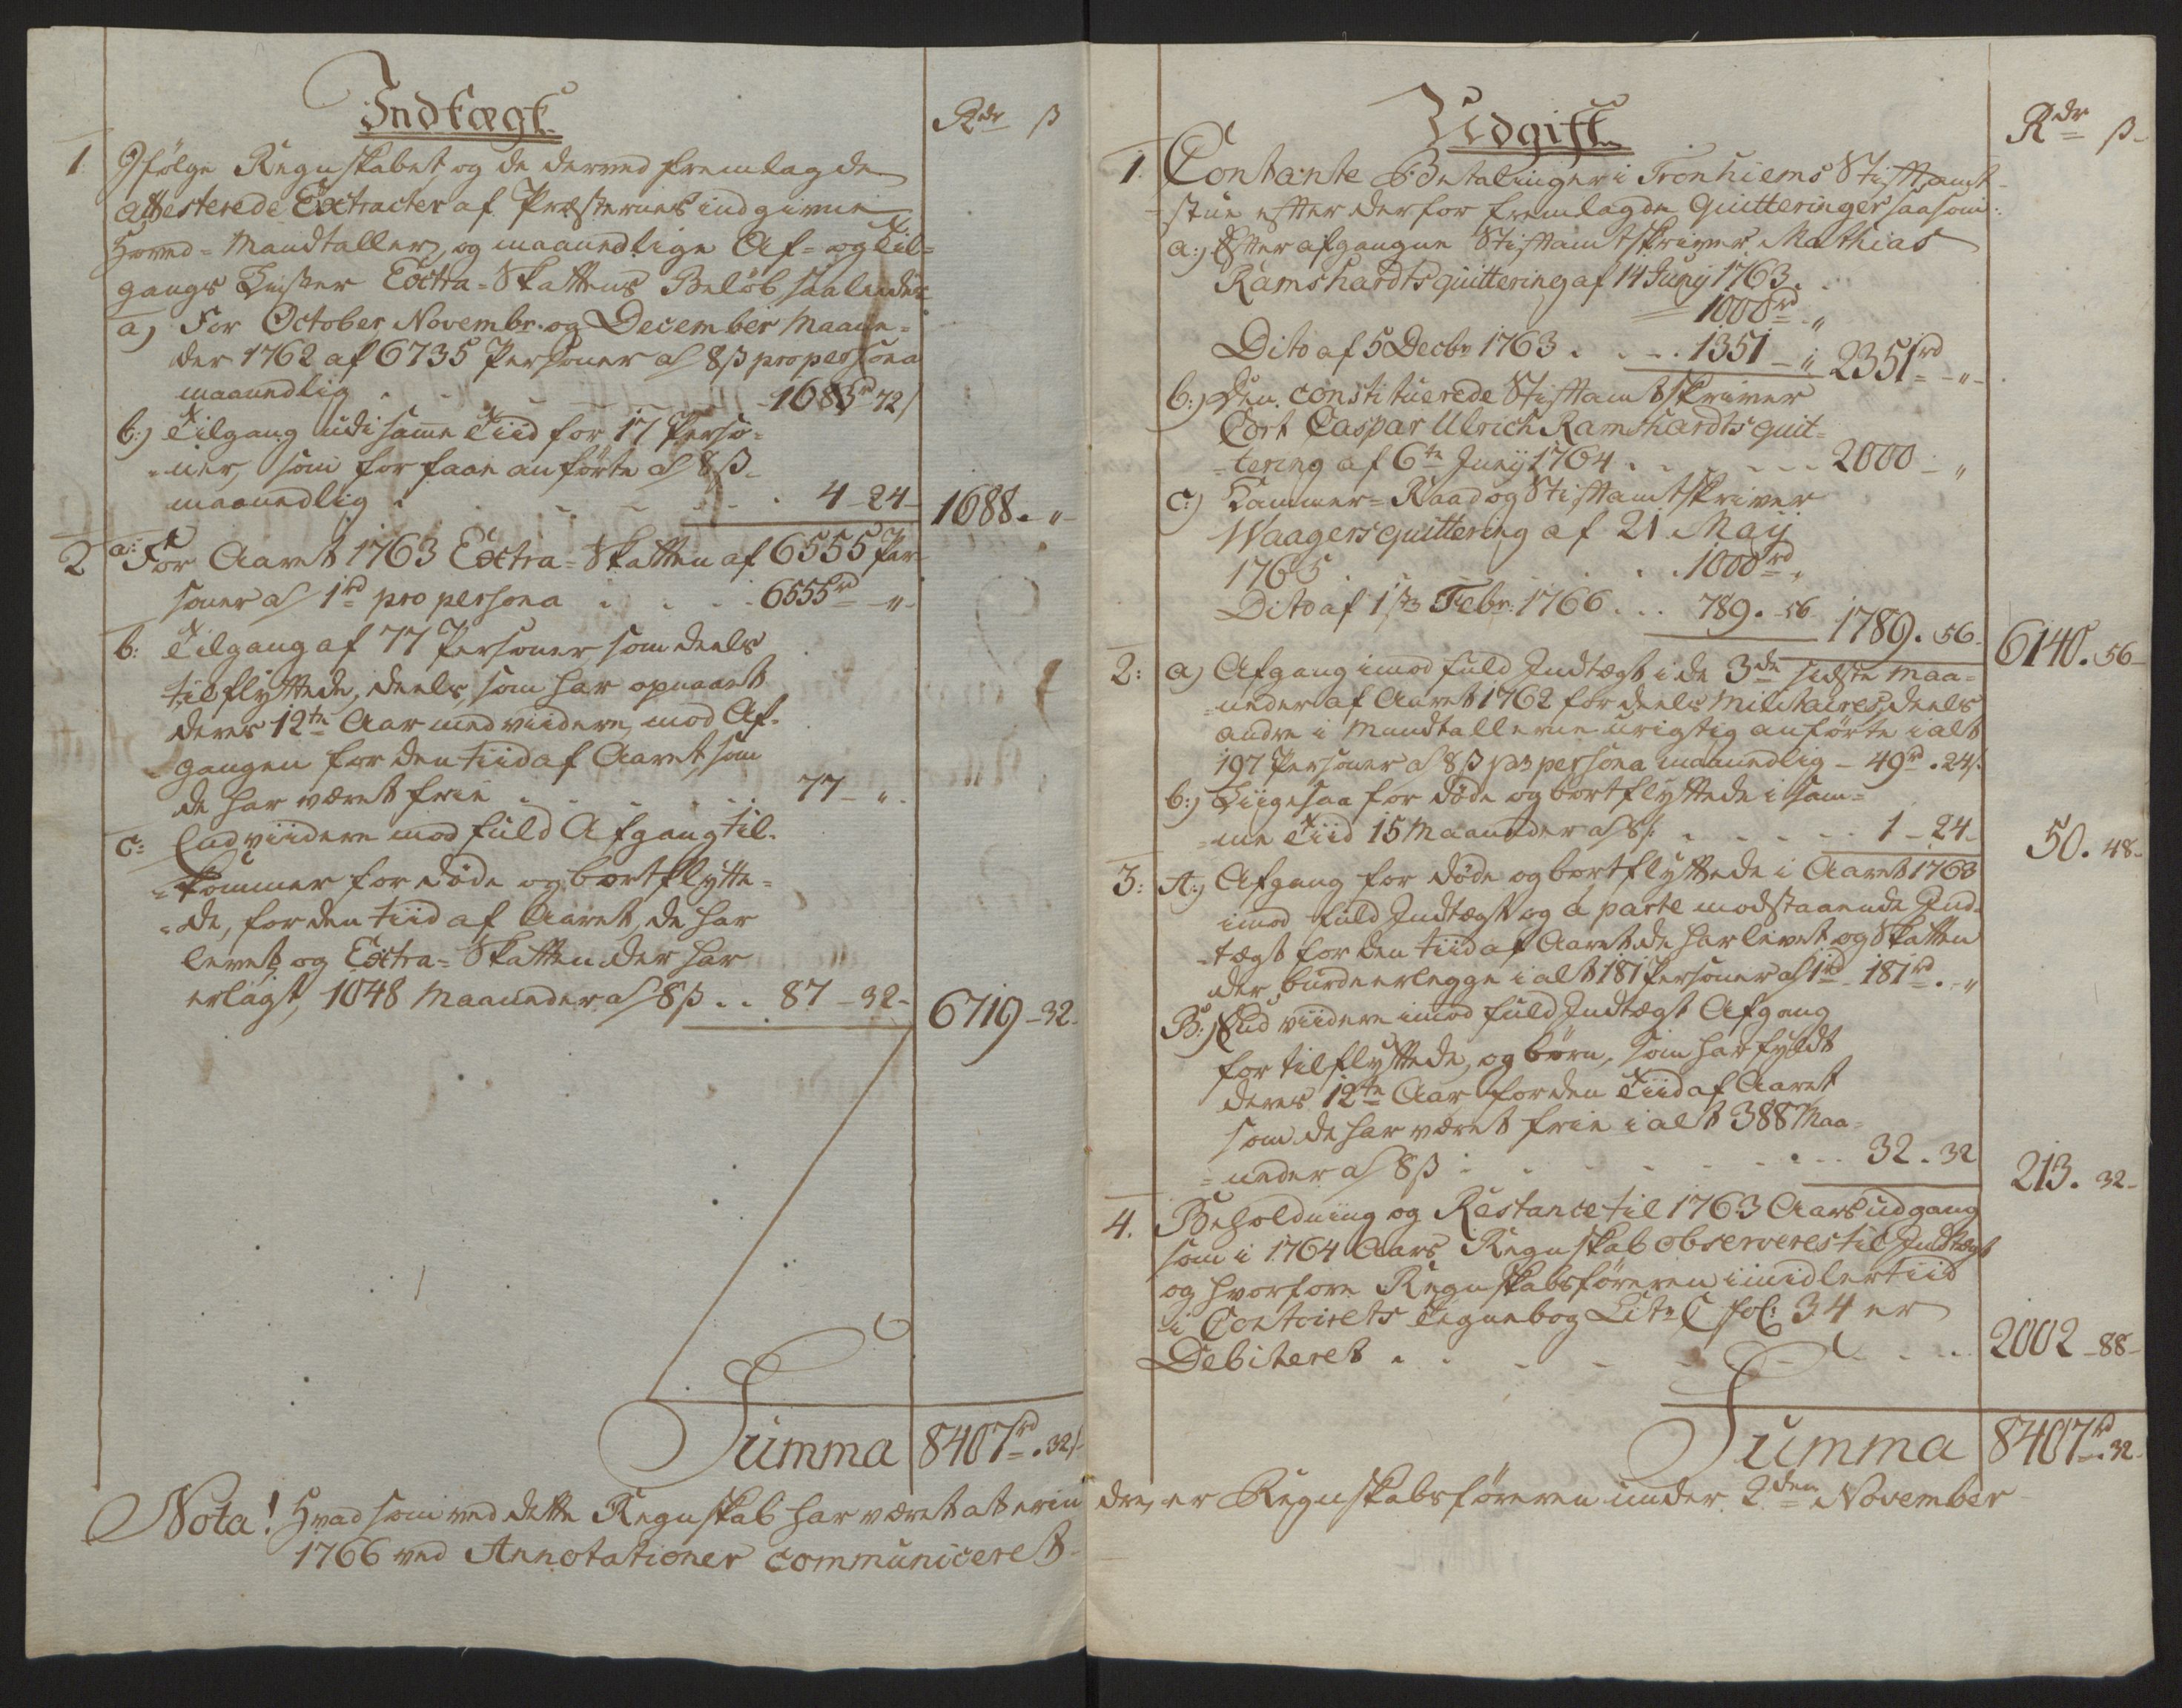 Indtægt
Rdr ß
1. Ifølge Regnskabet og de derved fremlagde
attesterede Extracter af Præsternes indgivne
Hoved-Mandtaller, og maanedlige Af- og Til-
gangs Lister Extra-Skattens Beløb saaledes
a) For October Novembr. og December Maane-
der 1762 af 6735 Personer a 8ß pro persona
maanedlig . . . 1683rd 72/
b:) Tilgang udi samme Tiid for 17 Perso-
ner, som for faae anførte a 8ß
maanedlig . . . 4-24- 1688. "-
2 a: For Aaret 1763 Extra-Skatten af 6555 Per-
soner a 1rd pro persona . . . 6555rd -"-
b: Tilgang af 77 Personer som deels
tilflyttede, deels, som har opnaaet
deres 12te Aar med viidere, mod Af-
gangen for den tiid af Aaret, som
de har været frie . . . 77- ".
c: End viidere mod fuld Afgang til-
kommer for døde og bortflytte-
de, for den tiid af Aaret, de har
levet og Extra-Skatten der har
erlagt, 1048 Maaneder a 8ß . . 87-32- 6719-32-
Summa 8407rd. 32/-
Udgift
Rdr ß-
1. Contante Betalinger i Tronhiems Stiftamt-
stue efter derfor fremlagde Quitteringer saasom:
a:) Efter afgangne Stiftamtskriver Mathias
Ramshardts quittering af 14 Junij 1763 .
1000rd "
Dito af 5 Decbr 1763 . . . . 1351 - " 2351rd -"-
b:) Den constituerede Stiftamtskriver
Cort Caspar Ulrich Ramshardts quit-
tering af 6te Junij 1764 . . . 2000 - "
c:) Kammer-Raad og Stiftamtskriver
Waagers quittering af 21 May
1765 . . . 1000rd "
Dito af 1ste Febr: 1766 . . . 789. 56- 1789. 56- 6140. 56-
2: a) Afgang imod fuld Indtægt i de 3de sidste Maa-
neder af Aaret 1762 for deels Militaires, deels
andre i Mandtallerne urigtig anførte i alt
197 Personer a 8ß pro persona maanedlig - 49rd. 24/.
b:) Liigesaa for døde og bortflyttede i sam-
me Tiid 15 Maaneder a 8/: . . . 1-24- 50. 48-
3: A:) Afgang for døde og bortflyttede i Aaret 1763
imod fuld Indtægt og a parte modstaaende Ind-
tægt for den tiid af Aaret de har levet og Skatten
der burde erlegge i alt 181 Personer a 1rd - 181rd. - "
B:) End viidere imod fuld Indtægt Afgang
for tilflyttede, og børn, som har fyldt
deres 12te Aar for den Tiid af Aaret
som de har været frie i alt 388 Maa-
neder a 8ß . . . 32. 32 213. 32-
4. Beholdning og Restance til 1763 Aars udgang
som i 1764 Aars Regnskab observeres til Indtægt
og hvorfore Regnskabsføreren imidlertiid
i Contoirets Tegnebog Litr C fol: 34 er
Debiteret . . . 2002-88-
Summa 8407rd. 32-
Nota! Hvad som ved dette Regnskab har været at erindre, er Regnskabsføreren under 2den November
1766 ved Annotationer communiceret-